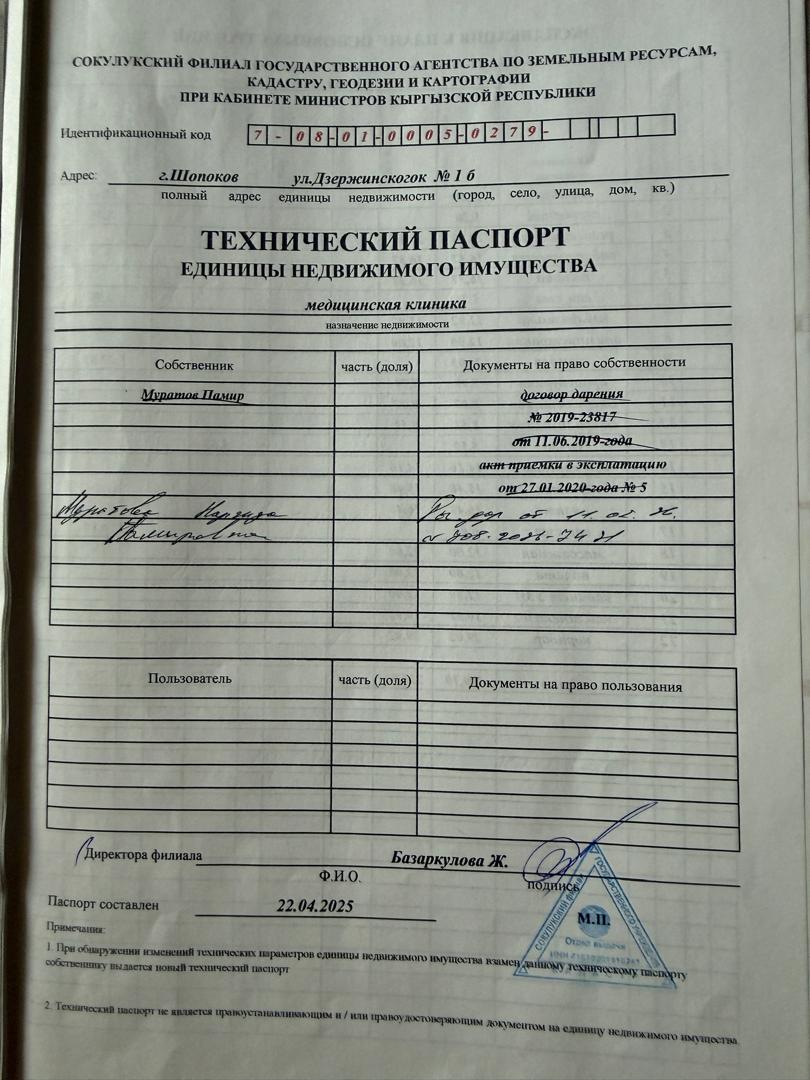 СОКУЛУКСКИЙ ФИЛИАЛ ГОСУДАРСТВЕННОГО АГЕНТСТВА ПО ЗЕМЕЛЬНЫМ РЕСУРСАМ,
КАДАСТРУ, ГЕОДЕЗИИ И КАРТОГРАФИИ
ПРИ КАБИНЕТЕ МИНИСТРОВ КЫРГЫЗСКОЙ РЕСПУБЛИКИ
Идентификационный код 7-08-01-0005-0279-
Адрес: г.Шопоков ул.Дзержинскогок № 1 б
полный адрес единицы недвижимости (город, село, улица, дом, кв.)
ТЕХНИЧЕСКИЙ ПАСПОРТ
ЕДИНИЦЫ НЕДВИЖИМОГО ИМУЩЕСТВА
медицинская клиника
назначение недвижимости
Собственник часть (доля) Документы на право собственности
Муратов Памир договор дарения
№ 2019-23817
от 11.06.2019 года
акт приемки в эксплатацию
от 27.01.2020 года № 5
Муратова
Памировна
Пользователь часть (доля) Документы на право пользования
Директора филиала Базаркулова Ж.
Ф.И.О. подпись
М.П.
Паспорт составлен 22.04.2025
Примечания:
1. При обнаружении изменений технических параметров единицы недвижимого имущества взамен данному техническому паспорту
собственнику выдается новый технический паспорт
2. Технический паспорт не является правоустанавливающим и / или правоудостоверяющим документом на единицу недвижимого имущества